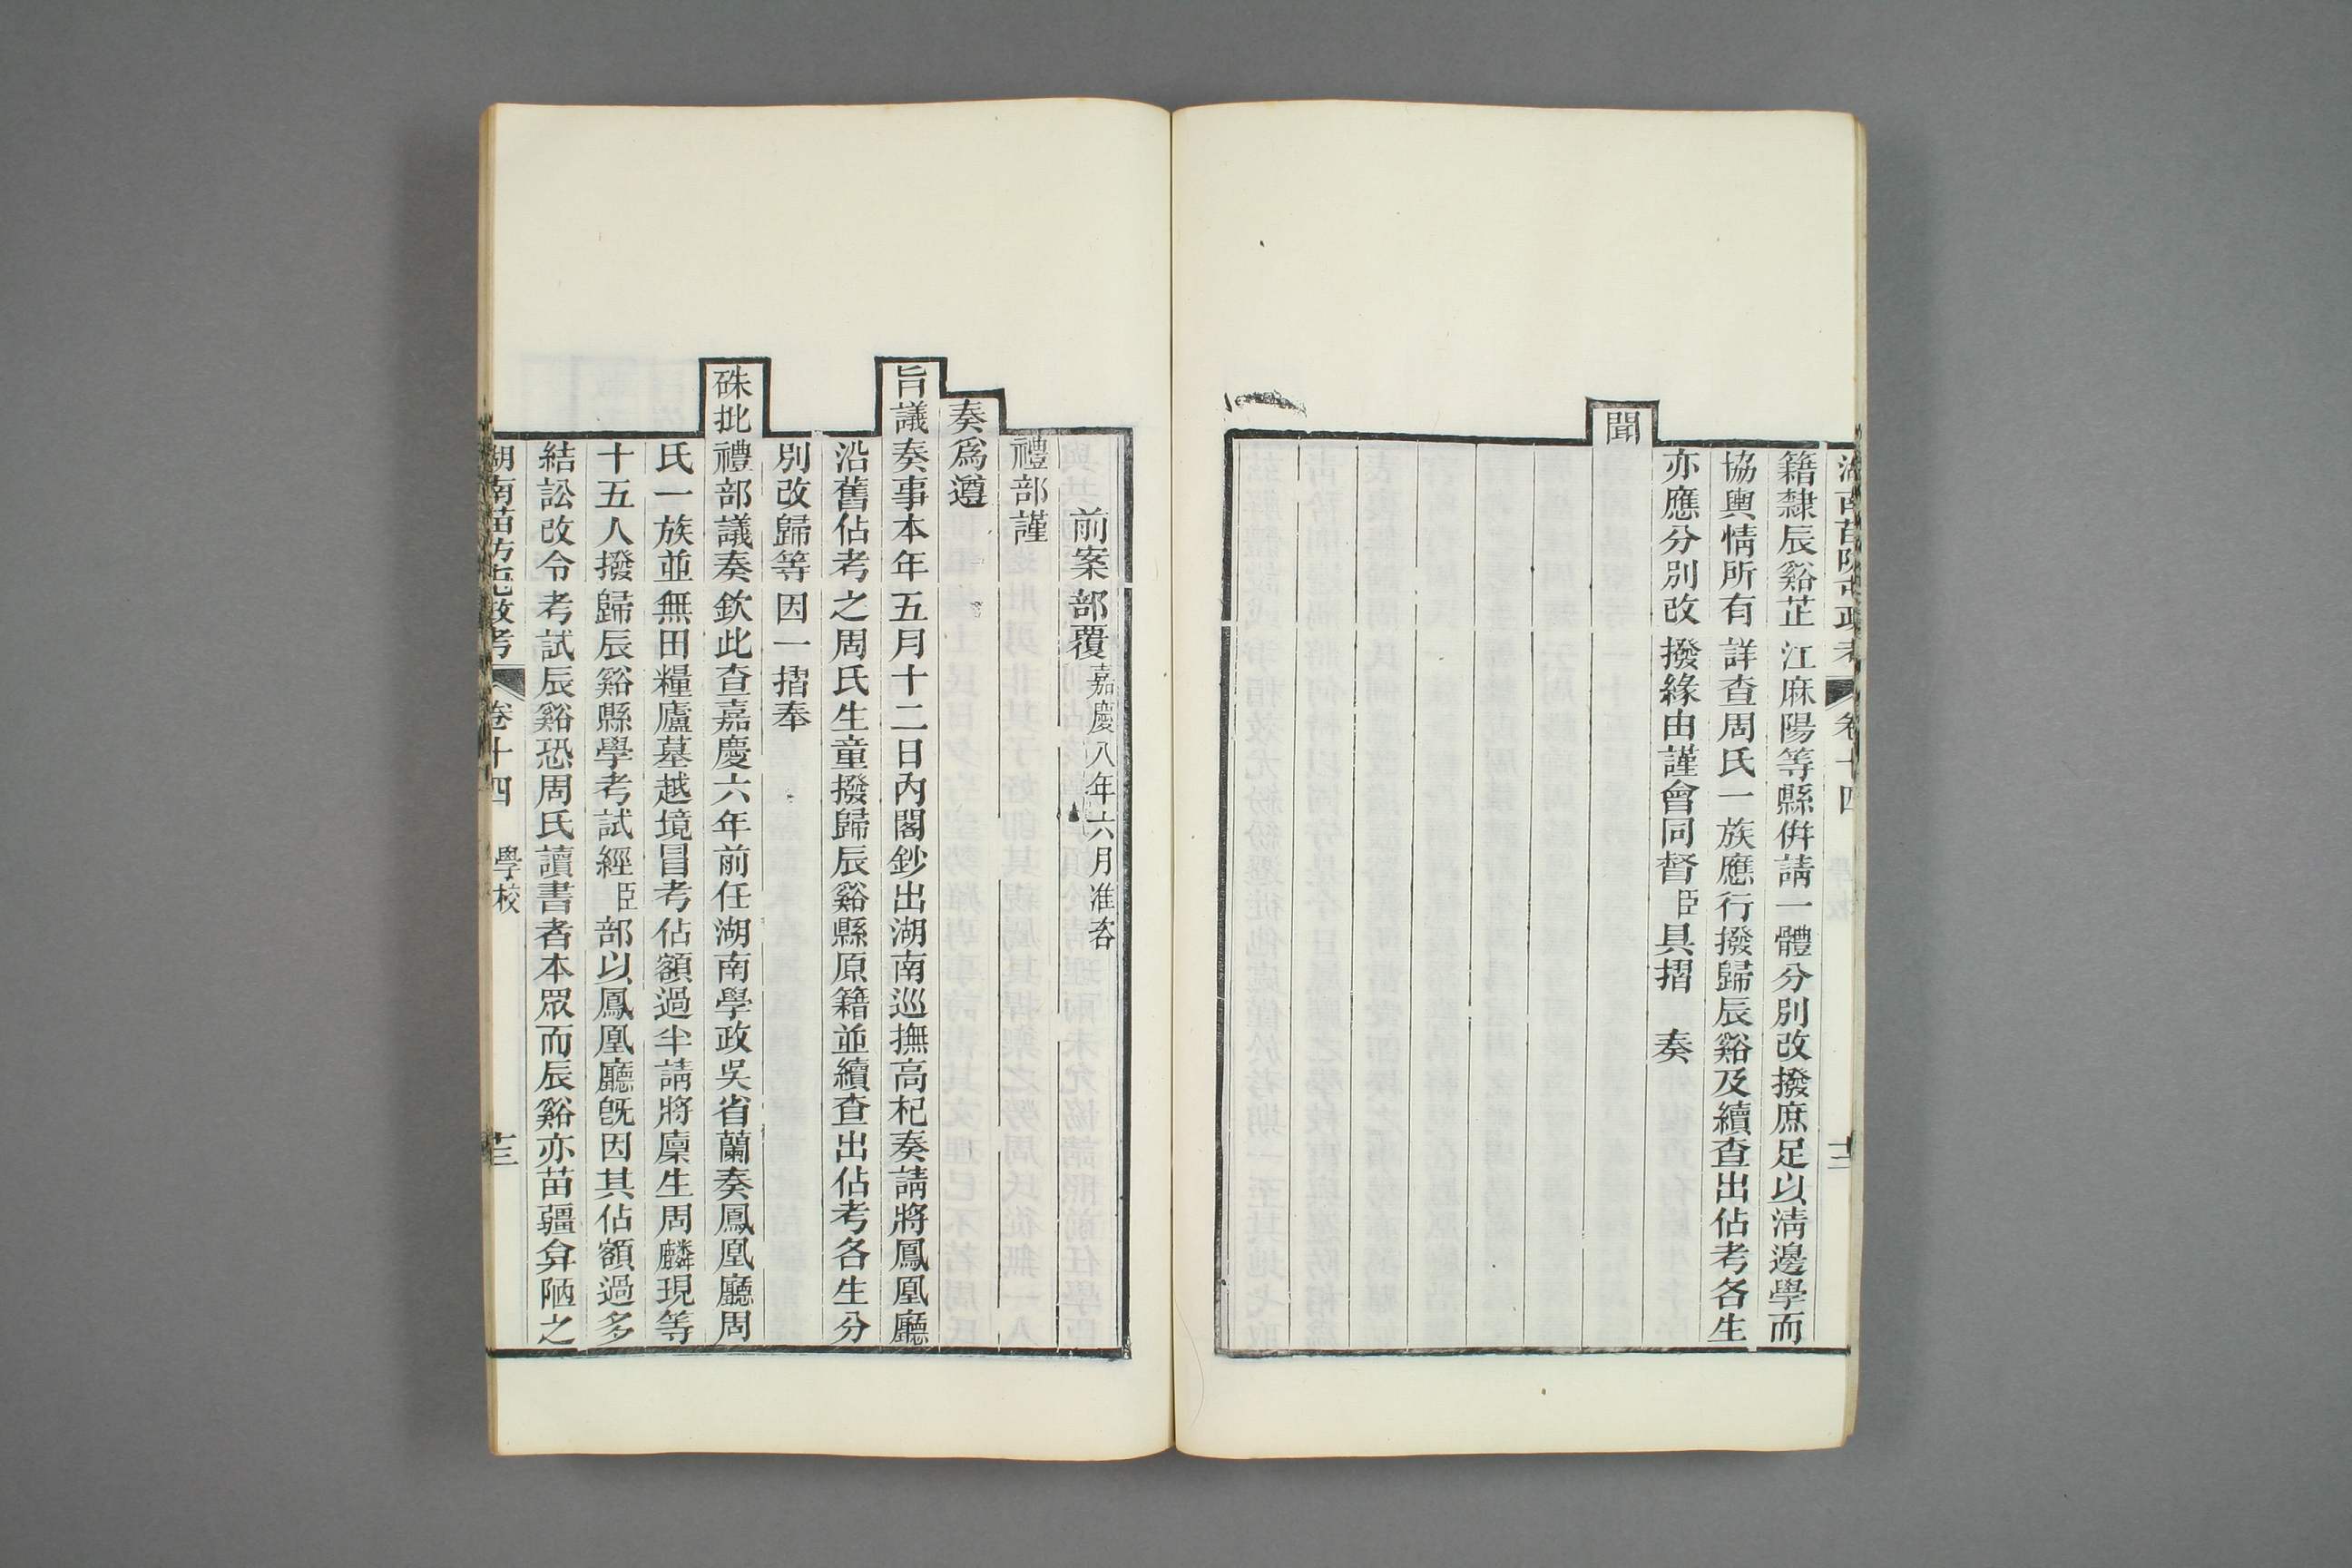 湖南苗防屯政考 卷十四 學校 十二
籍隸辰谿芷江麻陽等縣倂請一體分別改撥庶足以淸邊學而
協輿情所有詳查周氏一族應行撥歸辰谿及續查出佔考各生
亦應分別改撥緣由謹會同督臣具摺 奏
聞
前案部覆嘉慶八年六月准咨
禮部謹
奏爲遵
旨議奏事本年五月十二日內閣鈔出湖南巡撫高杞奏請將鳳凰廳
沿舊佔考之周氏生童撥歸辰谿縣原籍並續查出佔考各生分
別改歸等因一摺奉
硃批禮部議奏欽此查嘉慶六年前任湖南學政吳省蘭奏鳳凰廳周
氏一族並無田糧廬墓越境冒考佔額過半請將廩生周麟現等
十五人撥歸辰谿縣學考試經臣部以鳳凰廳旣因其佔額過多
結訟改令考試辰谿恐周氏讀書者本眾而辰谿亦苗疆弇陋之
湖南苗防屯政考 卷十四 學校 十三